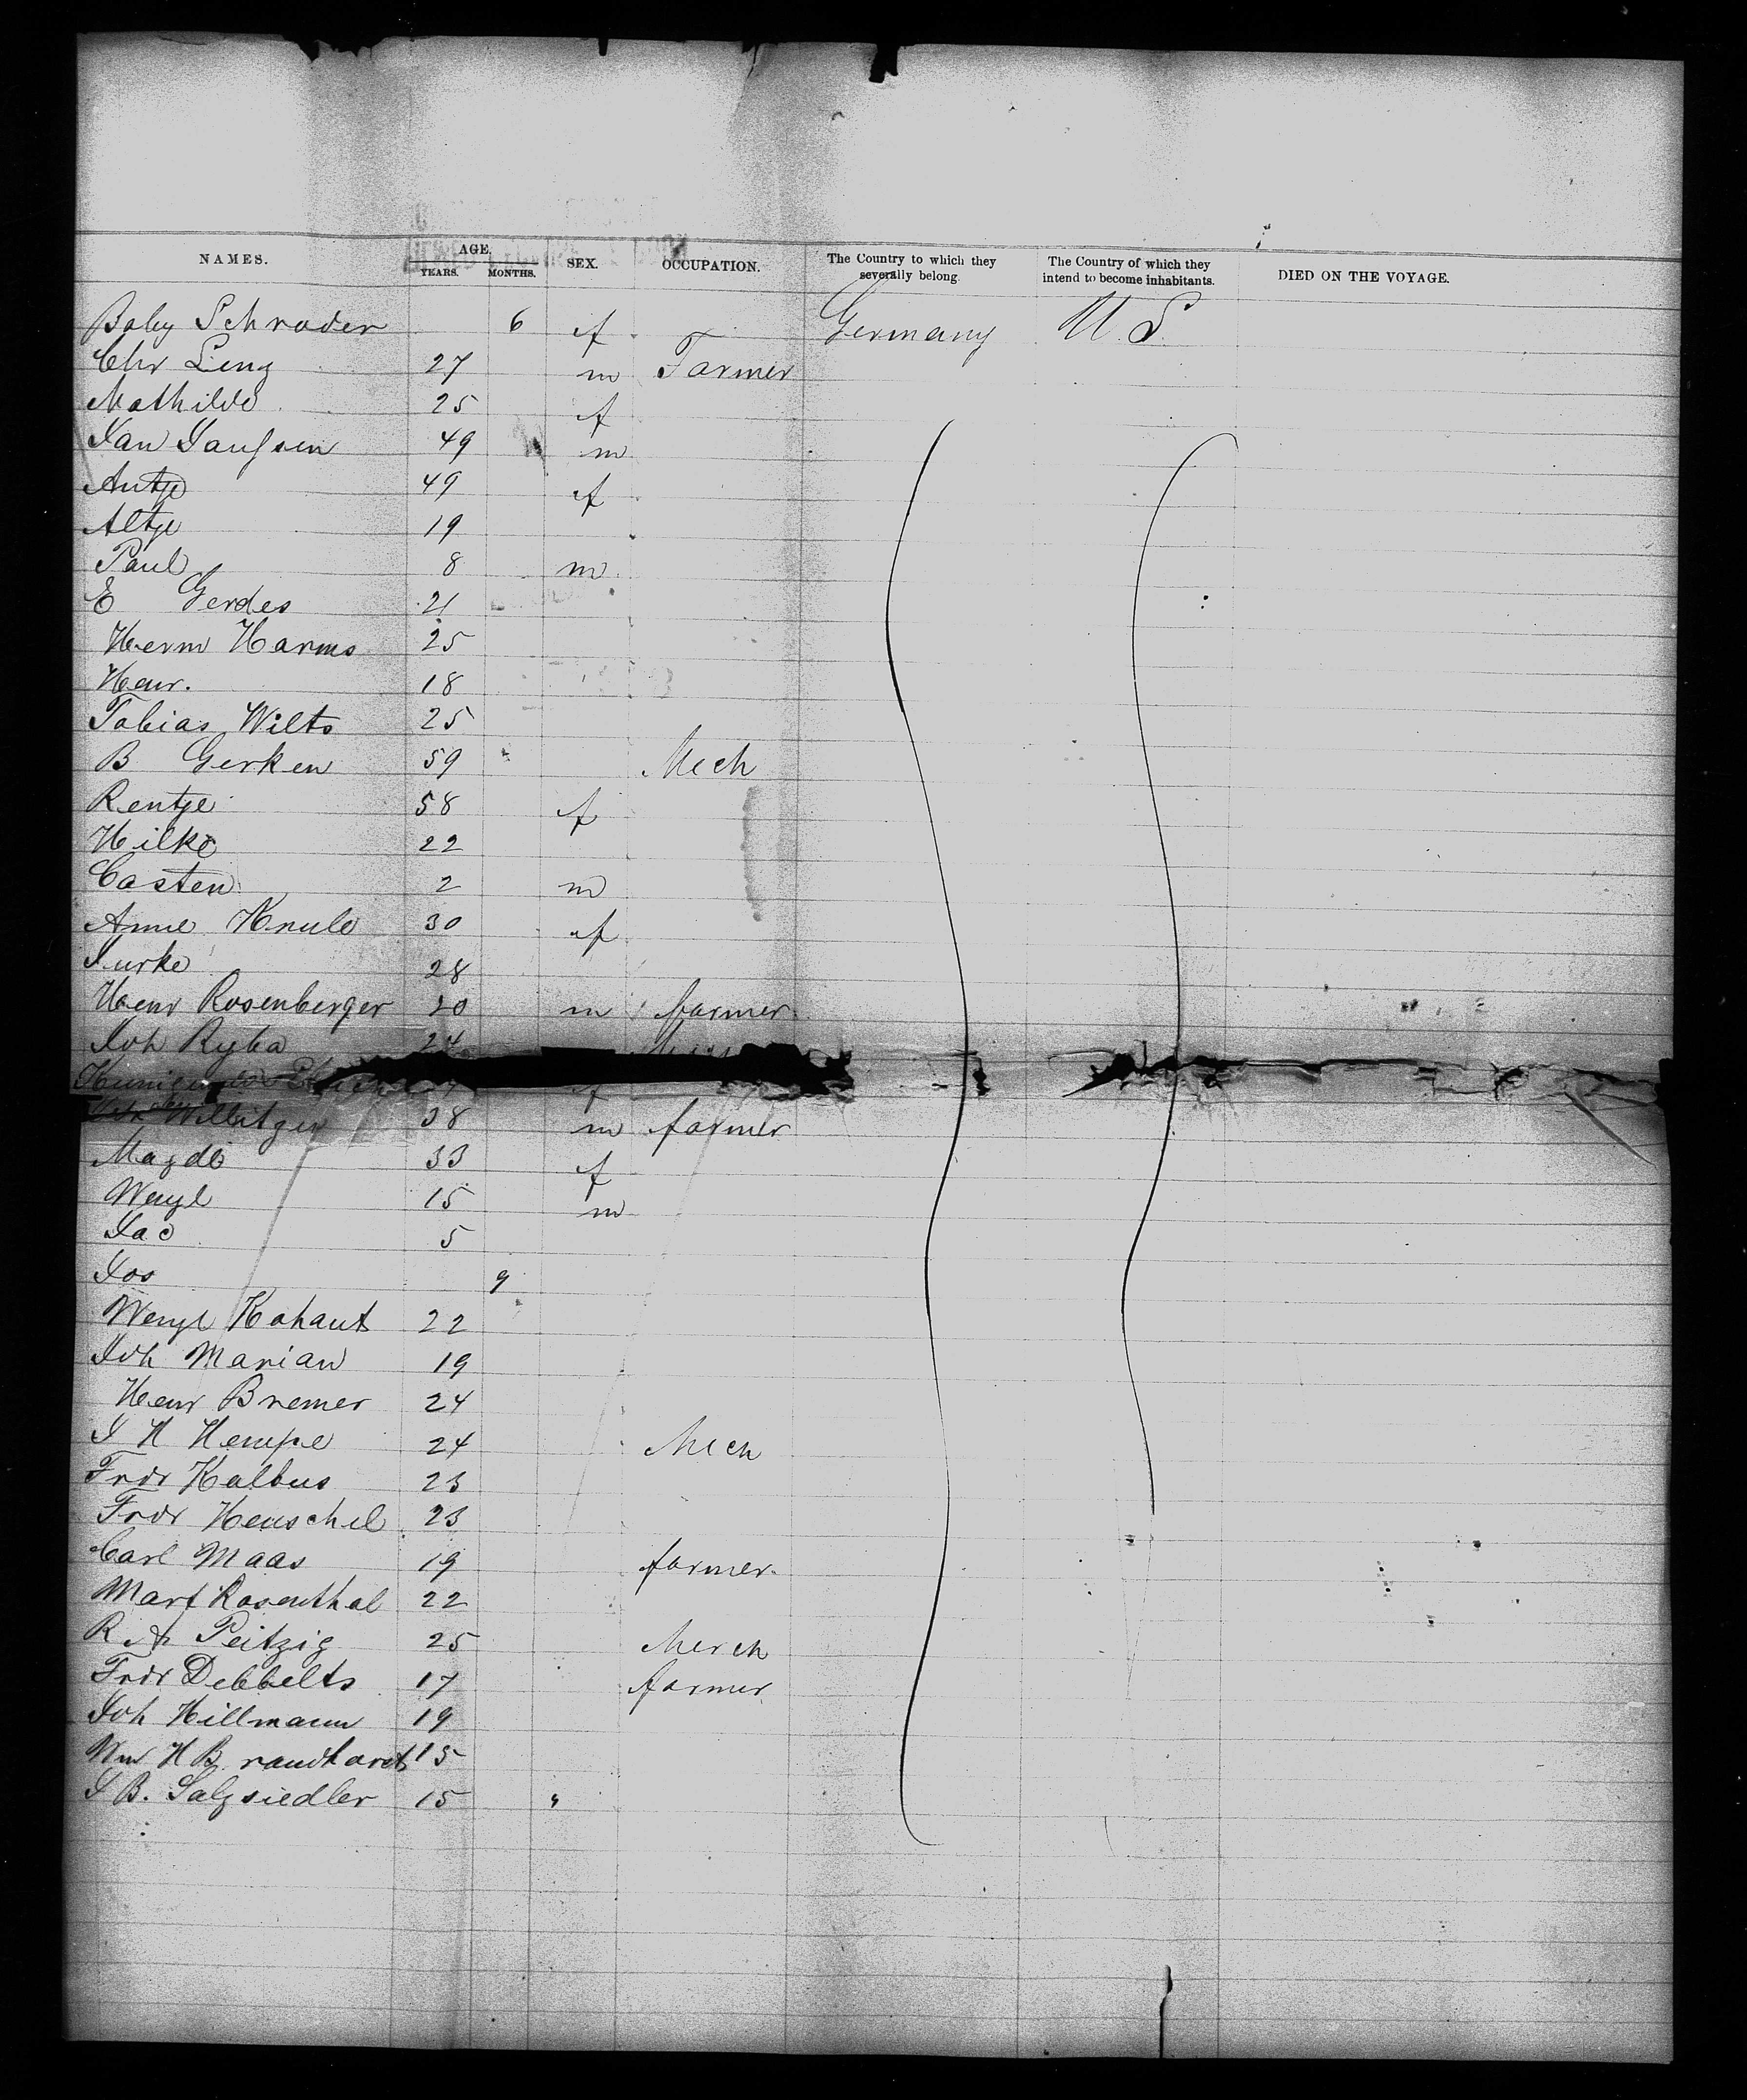 NAMES. AGE. YEARS. MONTHS. SEX. OCCUPATION. The Country to which they severally belong. The Country of which they intend to become inhabitants. DIED ON THE VOYAGE.
Baby Schrader 6 f Germany U.S.
Chr Lenz 27 m Farmer
Mathilde 25 f
Jan Janssen 49 m
Antje 49 f
Altje 19
Paul 8 m
E Gerdes 21
Herm Harms 25
Henr. 18
Tobias Wilts 25
B Gerken 59 Mech
Rentje 58 f
Hilke 22
Casten 2 m
Anne Krule 30 f
Jurke 28
Henr Rosenberger 20 m farmer
Joh Ryba 24
f
38 m farmer
Magde 33 f
Wenzl 15 m
Jac 5
Jos 9
Wenzl Kohaut 22
Joh Marian 19
Henr Bremer 24
J H Hempe 24 Mech
Frdr Kalbus 23
Frdr Henschel 23
Carl Maas 19 farmer
Mart Rosenthal 22
R A Peitzig 25 Merch
Frdr Debbelts 17 farmer
Joh Hillmann 19
Wm H Brandhorst 15
J B. Salzsiedler 15 "